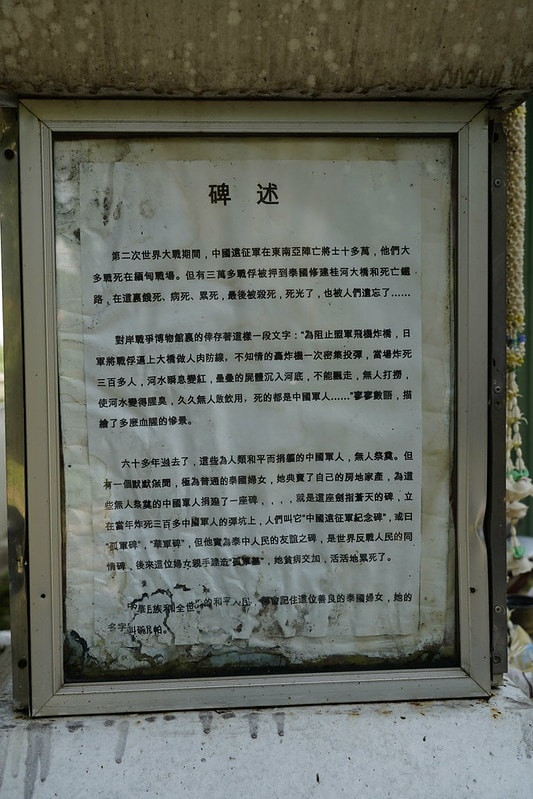 碑 述
第二次世界大戰期間，中國遠征軍在東南亞陣亡將士十多萬，他們大
多戰死在緬甸戰場。但有三萬多戰俘被押到泰國修建桂河大橋和死亡鐵
路，在這裏餓死、病死、累死，最後被殺死，死光了，也被人們遺忘了……
對岸戰爭博物館裏的倖存著這樣一段文字："為阻止盟軍飛機炸橋，日
軍將戰俘逼上大橋做人肉防線，不知情的轟炸機一次密集投彈，當場炸死
三百多人，河水瞬息變紅，壘壘的屍體沉入河底，不能飄走，無人打撈，
使河水變得腥臭，久久無人敢飲用，死的都是中國軍人……"寥寥數語，描
繪了多麼血腥的慘景。
六十多年過去了，這些為人類和平而捐軀的中國軍人，無人祭奠。但
有一個默默無聞，極為普通的泰國婦女，她典賣了自己的房地家產，為這
些無人祭奠的中國軍人捐建了一座碑，．．．就是這座劍指蒼天的碑，立
在當年炸死三百多中國軍人的彈坑上，人們叫它"中國遠征軍紀念碑"，或曰
"孤軍碑"，"華軍碑"，但他實為泰中人民的友誼之碑，是世界反戰人民的同
情碑，後來這位婦女親手建造"孤軍墓"，她貧病交加，活活地累死了。
中華民族和全世 的和平人民 會記住這位善良的泰國婦女，她的
名字叫 帕。